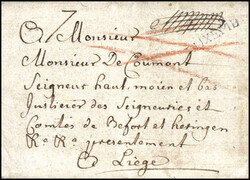 7
A Monsieur
Monsieur De Coumont
Seigneur haut, moien et bas
Justicier des Seigneuries et
Comtés de Befort et
presentement
A Liège